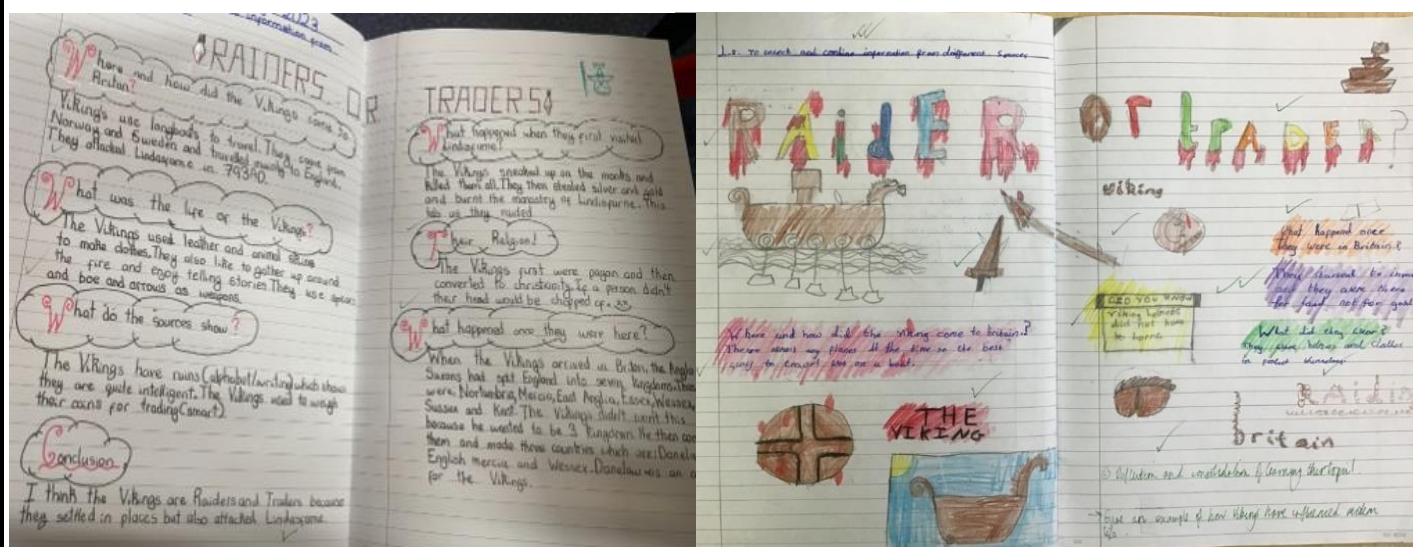 2023
information from
RAIDERS OR
Where and how did the Vikings come to
Britan?
Vikings use longboats to travel. They came from
Norway and Sweden and travelled mainly to England.
They attacked Lindasfarne in 793AD.
What was the life of the Vikings?
The Vikings used leather and animal skins
to make clothes. They also like to gather up around
the fire and enjoy telling stories. They use spears
and boe and arrows as weapons.
What do the sources show?
The Vikings have ruins (alphabet/writing) which shows
they are quite intelligent. The Vikings used to weigh
their coins for trading (smart)
Conclusion
I think the Vikings are Raiders and Traders because
they settled in places but also attacked Lindasfarne.
TRADERS
What happened when they first visited
Lindasfarne?
The Vikings sneaked up on the monks and
killed them all. They then stealed silver and gold
and burnt the monastry of Lindisfurne. This
us they raided
Their Religion!
The Vikings first were pagan and then
converted to christianity if a person didn't
their head would be chopped of.
What happened once they were here?
When the Vikings arrived in Britain, the Anglo
Saxons had spit England into seven kingdoms. These
were, Nortumbria, Mercia, East Anglia, Essex, Wessex,
Sussex and Kent. The Vikings didn't want this
because he wanted to be 3 kingdoms. He then
them and made three countries which are: Danela
English mercia and Wessex. Danelaw was an
for the Vikings.
L.O. To search and combine information from different sources
RAIdER
Where and how did the viking come to britain?
There wasn't any planes at the time so the best
was on a boat.
THE
VIKING
Or tRADER?
Viking
What happend once
They were in Britain?
and they were there
for land not for gold
DID YOU KNOW
Viking helmets
did not have
horns
What did they wear?
They wore helmets and
RAidin
britain
Reflection and consolidation of learning the topic!
Give an example of how Vikings have influenced modern
life.